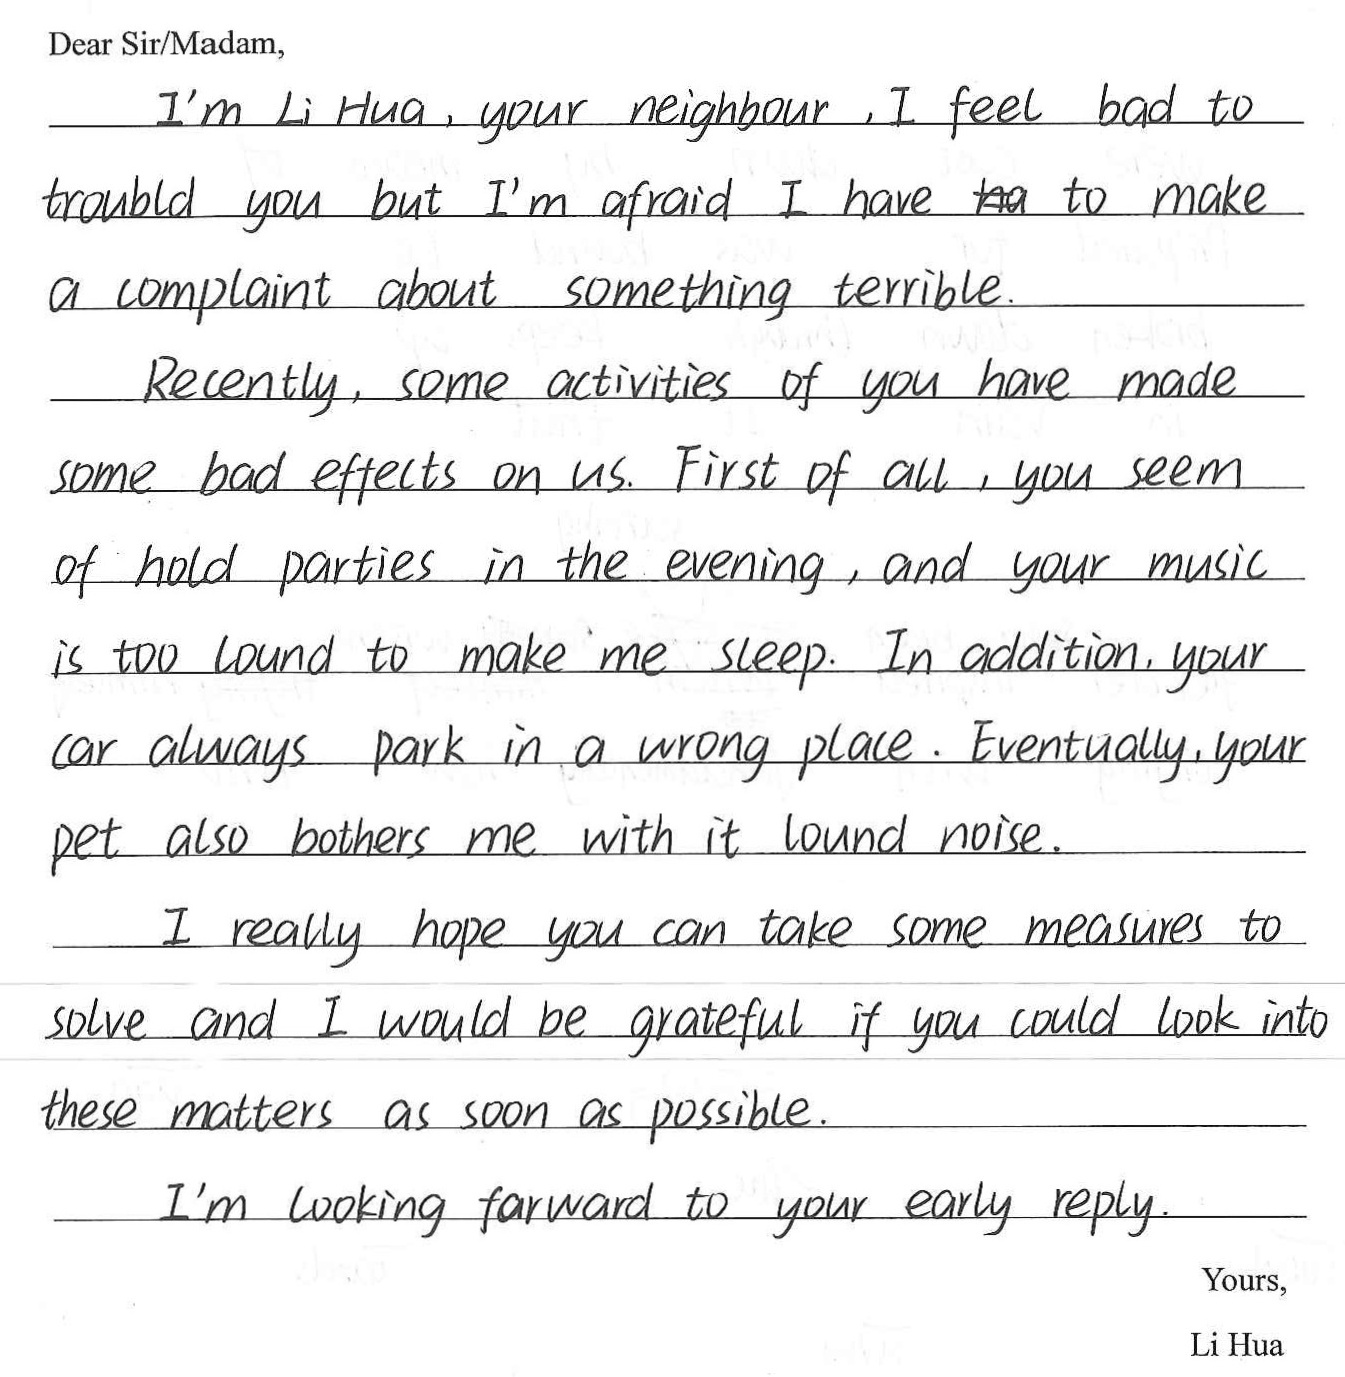 Dear Sir/Madam,
I'm Li Hua, your neighbour, I feel bad to
troubld you but I'm afraid I have to make
a complaint about something terrible.
Recently, some activities of you have made
some bad effects on us. First of all, you seem
of hold parties in the evening, and your music
is too lound to make me sleep. In addition, your
car always park in a wrong place. Eventually, your
pet also bothers me with it lound noise.
I really hope you can take some measures to
solve and I would be grateful if you could look into
these matters as soon as possible.
I'm looking farward to your early reply.
Yours,
Li Hua